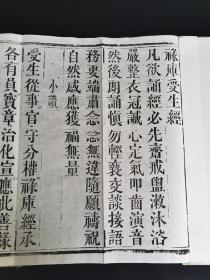 祿庫受生經
凡欲誦經必先齋戒盥漱沐浴
嚴整衣冠誠心定氣叩齒演音
然後朗誦慎勿輕褻交談接語
務要端肅念念無違隨願禱祝
自然感應獲福無量
小讚
受生從事官守分權祿庫經承
各有員寶章治化宣應此善緣